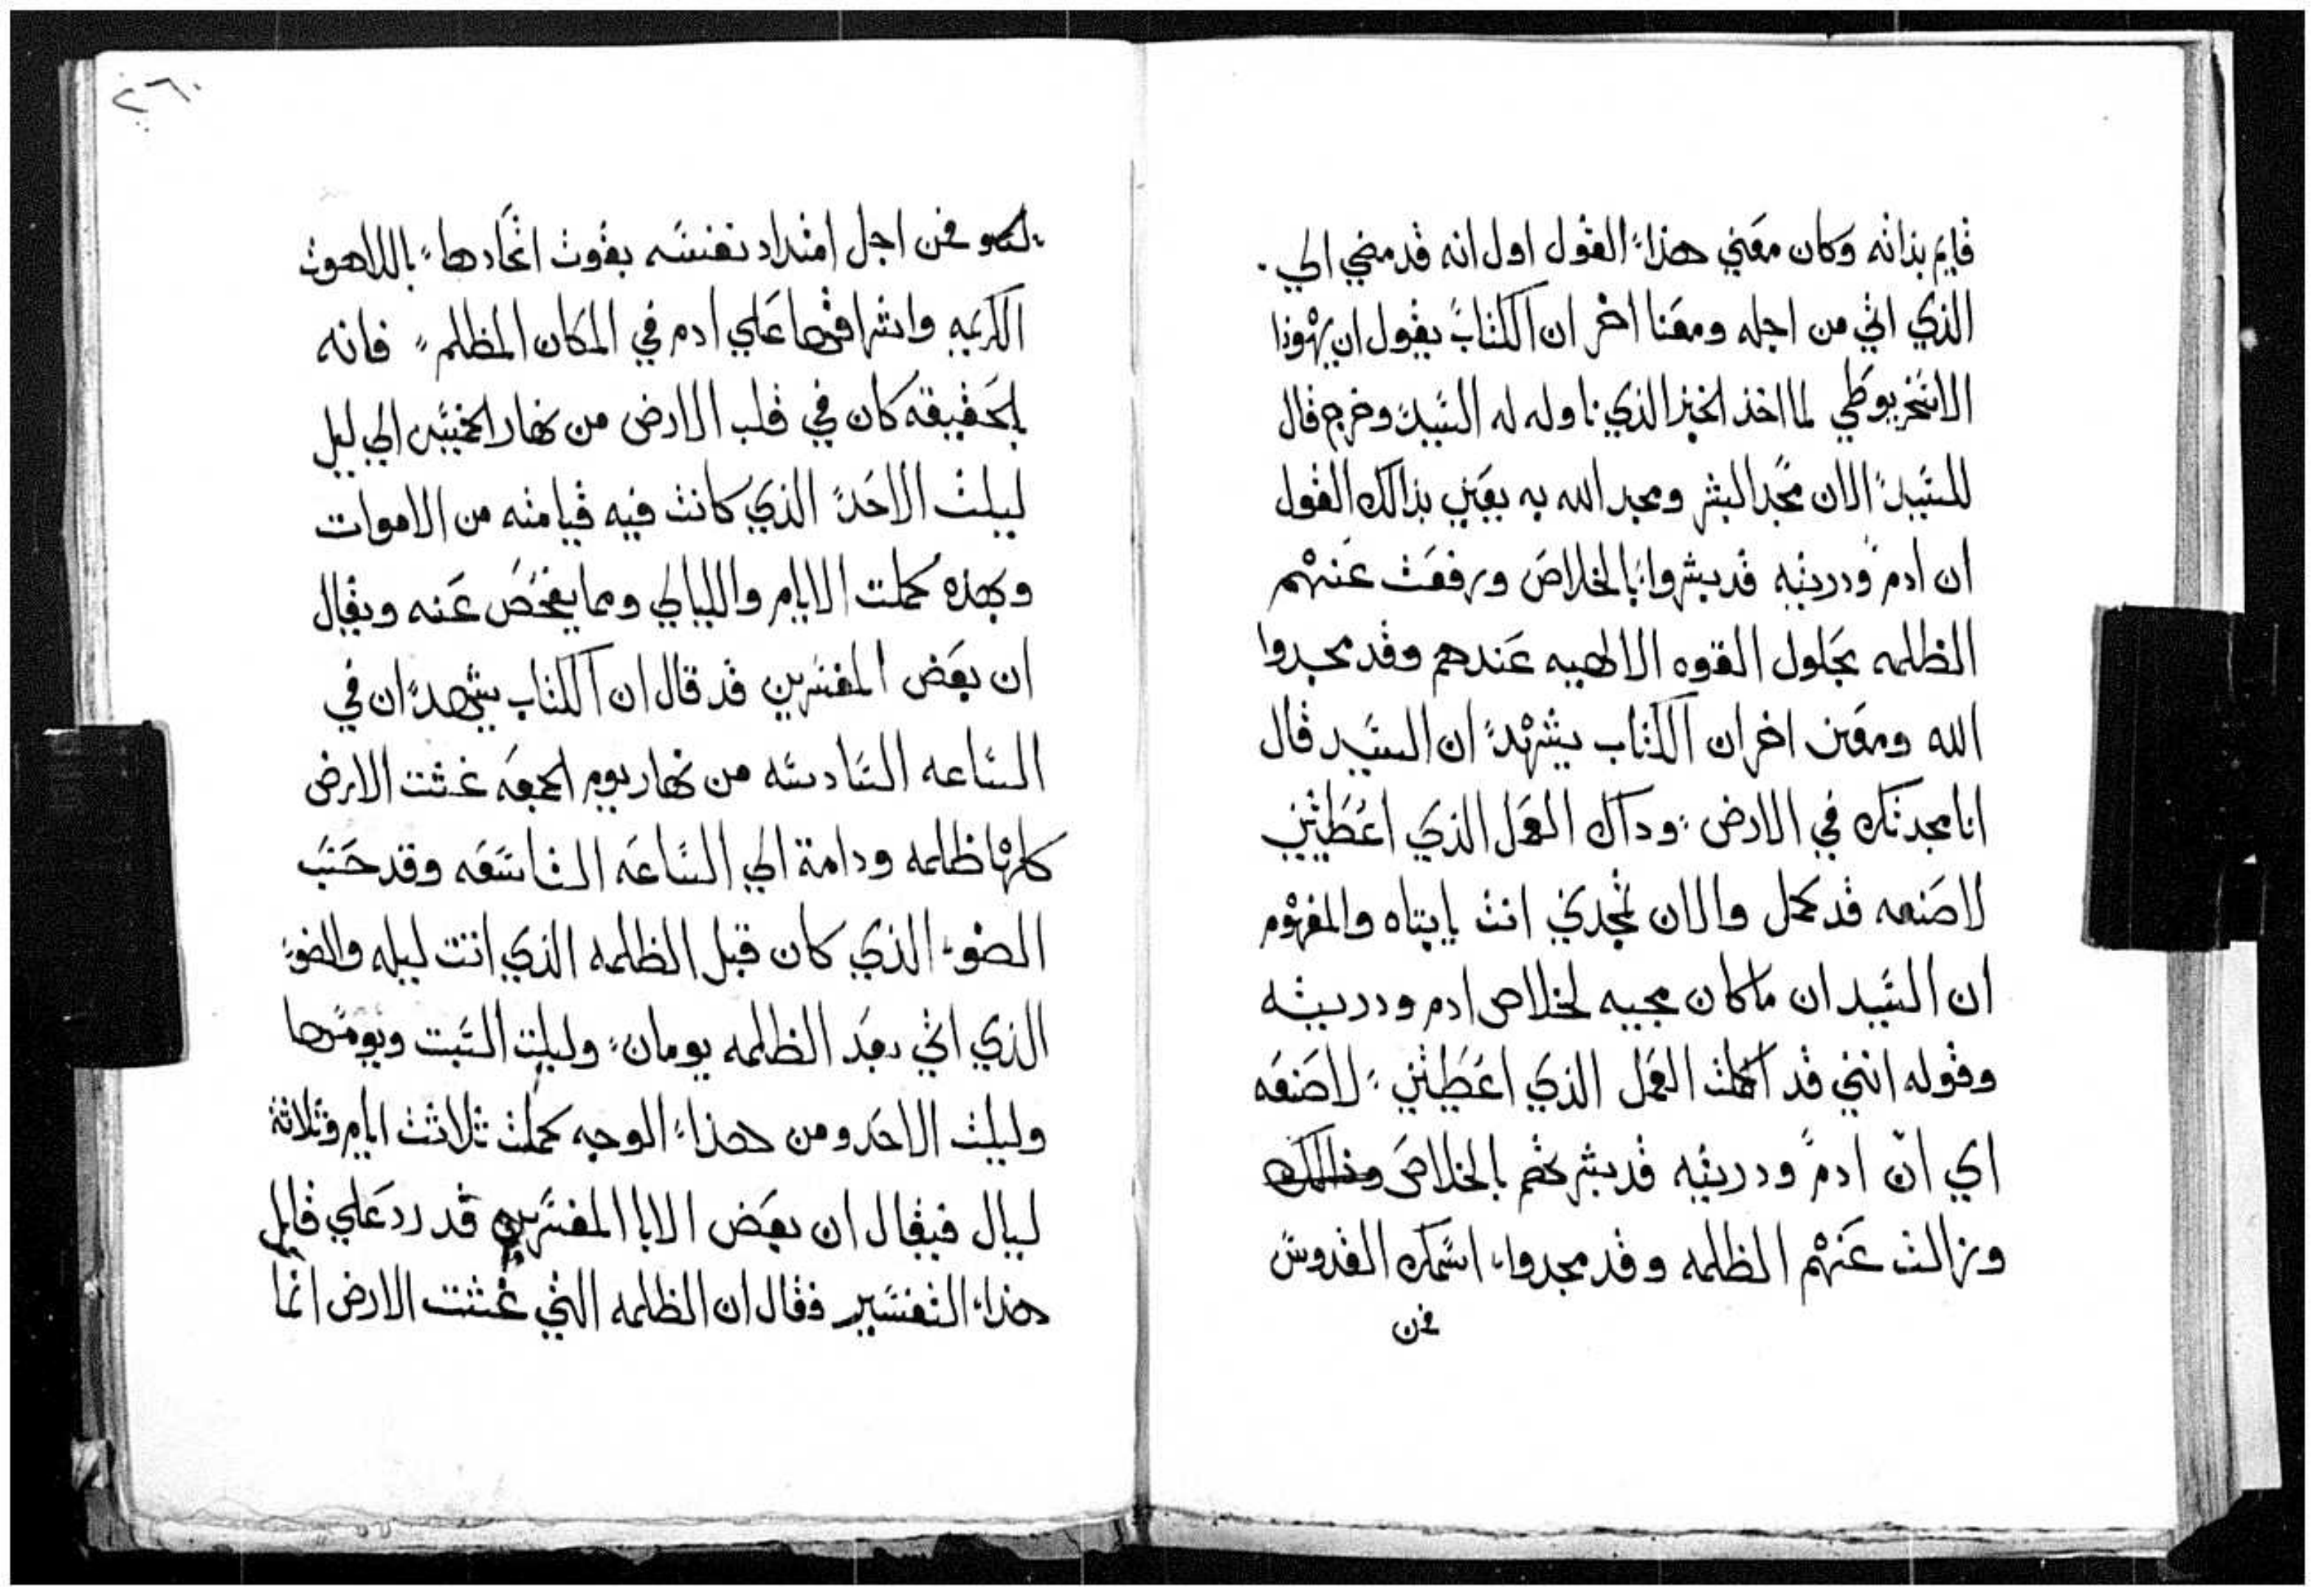 قايم بذاته وكان معني هذا القول اول انه قد مضي الي
الذي اتي من اجله ومعنا اخر ان الكتاب يقول ان يهوذا
الاسخريوطي لما اخذ الخبز الذي ناوله له السيد وخرج قال
للسيد الان مجد البشر ومجد الله به يعني بذالك القول
ان ادم ودريته قد بشروا بالخلاص ورفعت عنهم
الظلمه بحلول القوه الالهيه عندهم وقد مجدوا
الله ومعنى اخر ان الكتاب يشهد ان السيد قال
انا مجدتك في الارض وداك العمل الذي اعطيتني
لاصنعه قد كمل والان مجدني انت يابتاه والمفهوم
ان السيد ان ماكان مجيه لخلاص ادم ودريته
وقوله انني قد اكملت العمل الذي اعطيتني لاصنعه
اي ان ادم ودريته قد بشرتهم بالخلاص
وزالت عنهم الظلمه وقد مجدوا اسمك القدوس
فمن
٢٦٠
فمن اجل امتداد نفسه بقوت اتحادها باللاهوت
الكريمه واشراقها علي ادم في المكان المظلم فانه
بالحقيقه كان في قلب الارض من نهار الخميس الي ليل
ليلت الاحد الذي كانت فيه قيامته من الاموات
وبهذه كملت الايام والليالي ومما يفحص عنه ويقال
ان بعض المفسرين قد قال ان الكتاب يشهد ان في
الساعه السادسه من نهار يوم الجمعه غشت الارض
كلها ظلمه ودامة الي الساعه التاسعه وقد حسب
الضوء الذي كان قبل الظلمه الذي انتت ليله والضوء
الذي اتي بعد الظلمه يومان وليلت السبت ويومها
وليلت الاحد ومن هذا الوجه كملت تلاتت ايام وتلاتة
ليال فيقال ان بعض الابا المفسرين قد رد علي قايل
هذا التفسير فقال ان الظلمه التي غشت الارض انما